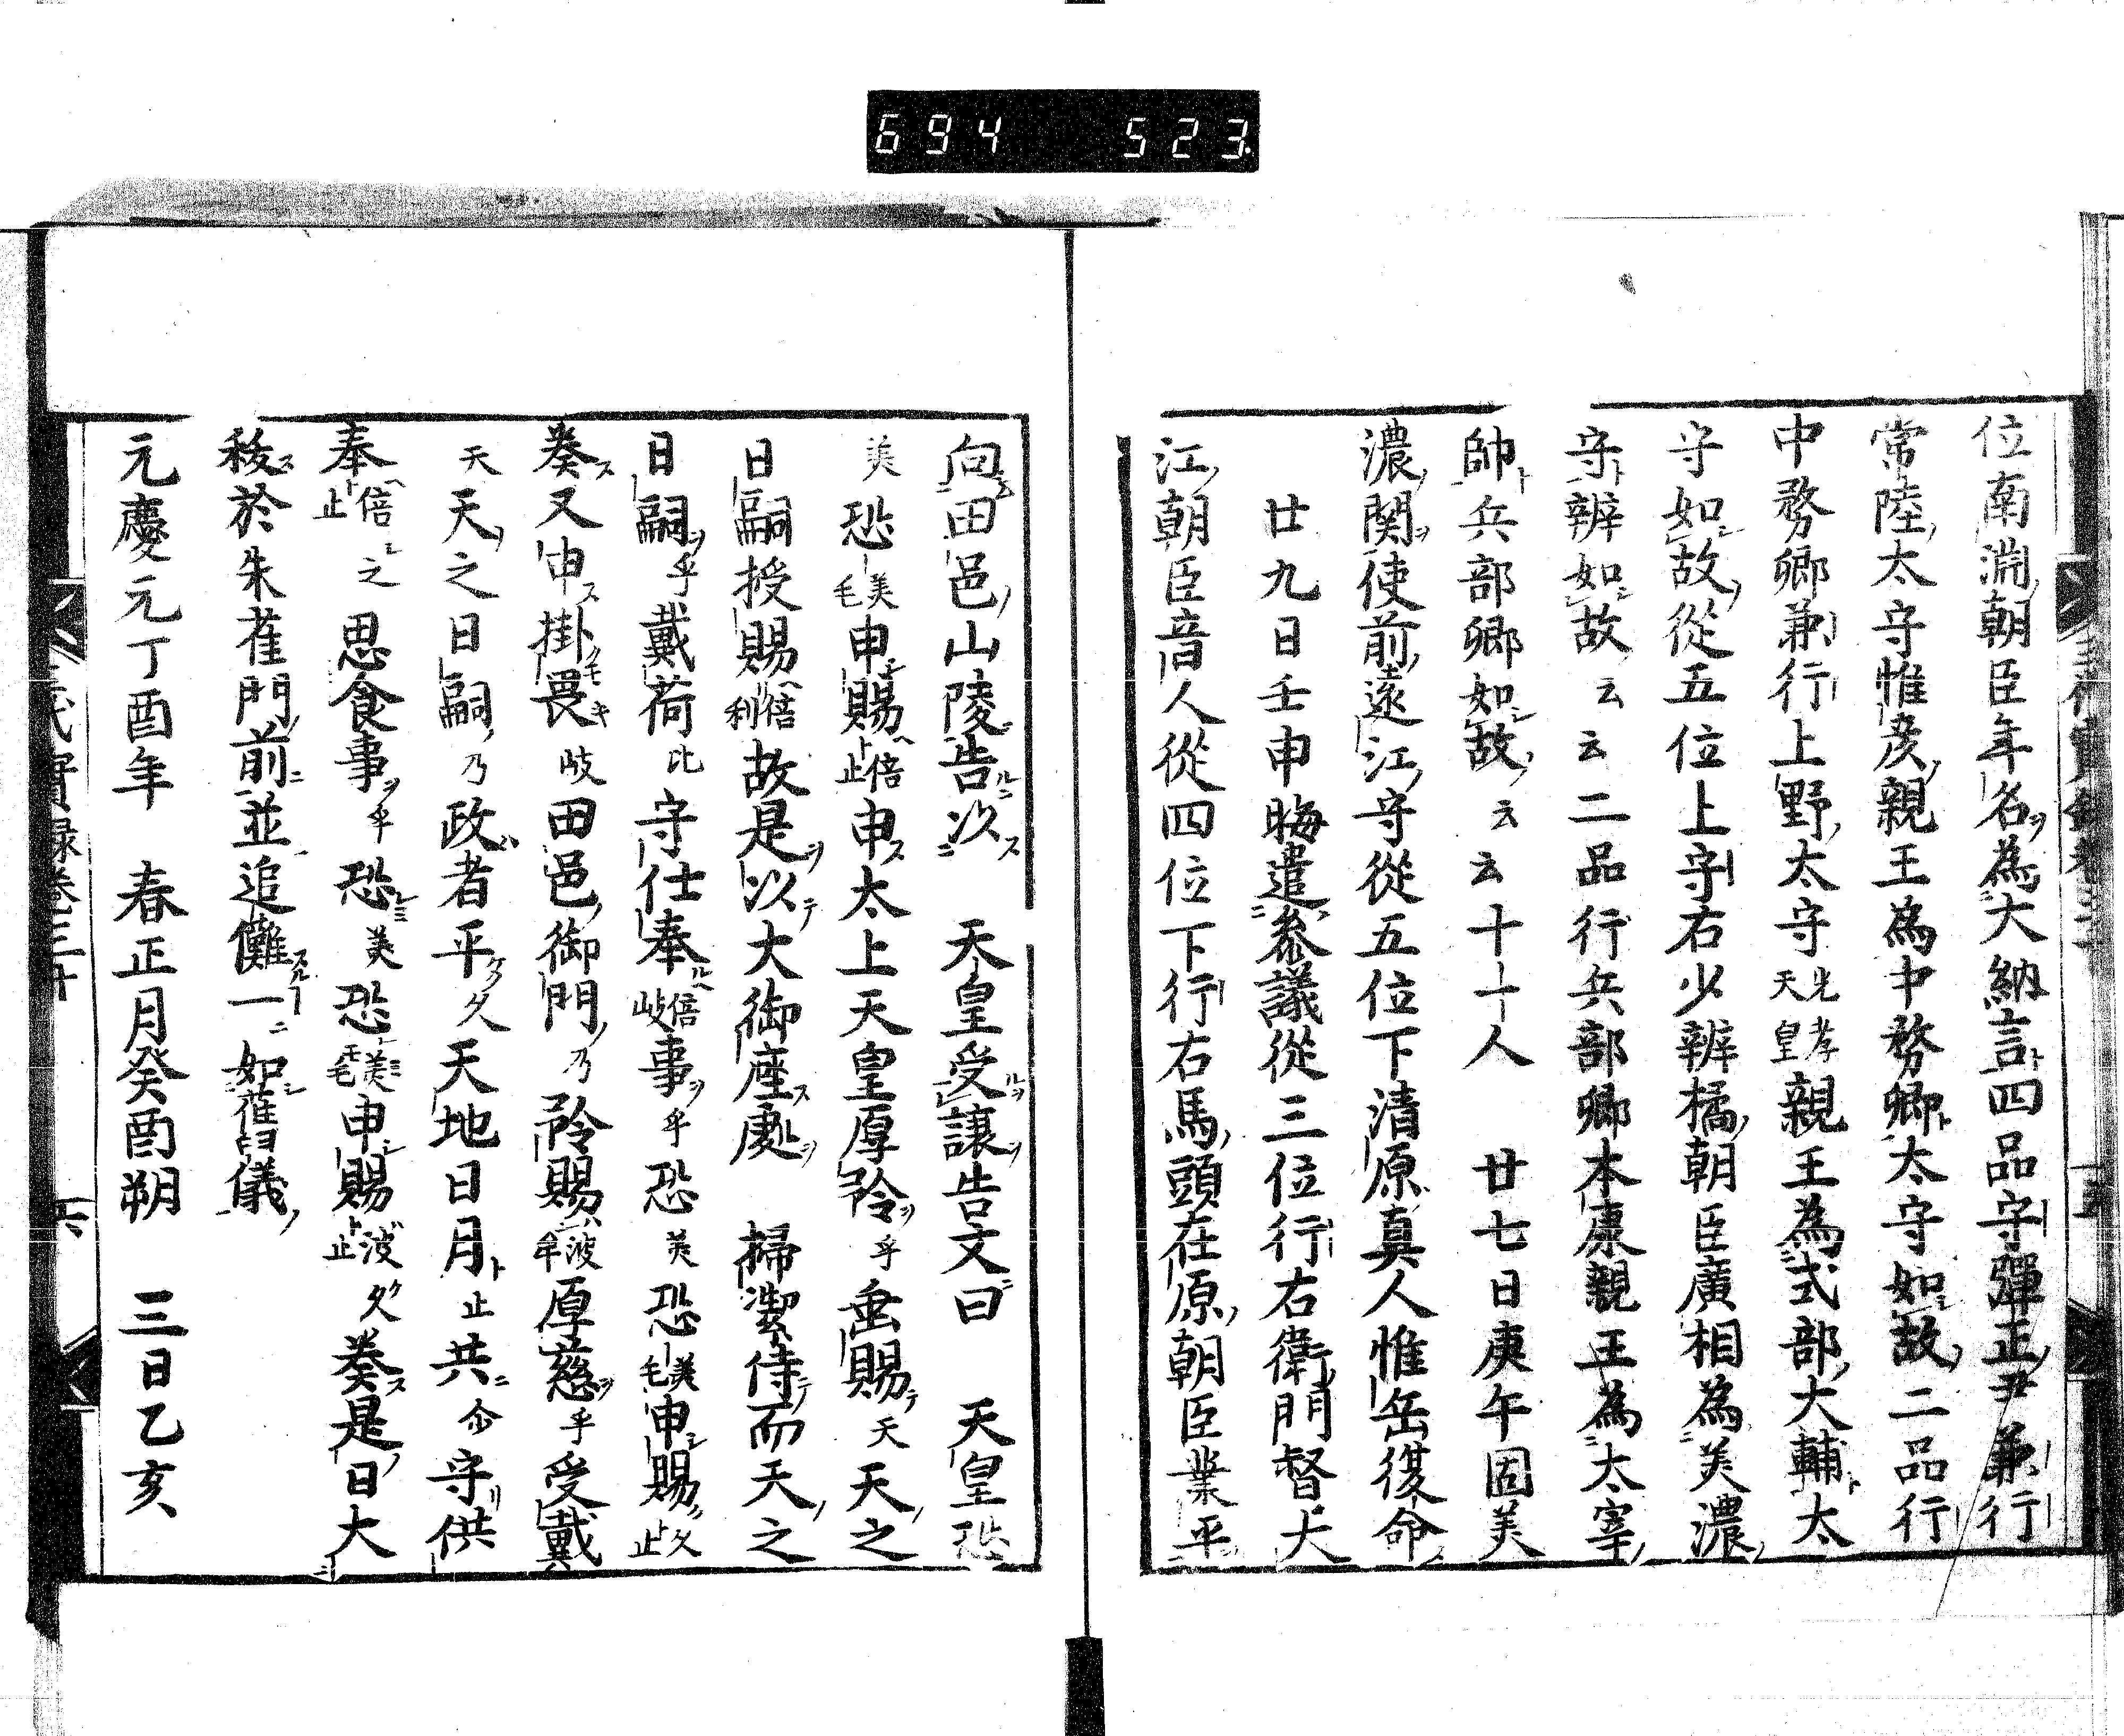 694 523
位南淵朝臣年名為大納言四品守彈正尹兼行
常陸太守惟彦親王為中務卿太守如故二品行
中務卿兼行上野太守光孝天皇親王為式部大輔太
守如故從五位上守右少辨橘朝臣廣相為美濃
守辨如故云云二品行兵部卿本康親王為太宰
帥兵部卿如故云云十十人 廿七日庚午固美
濃関使前遠江守從五位下清原真人惟岳復命
廿九日壬申晦遣参議從三位行右衛門督大
江朝臣音人從四位下行右馬頭在原朝臣業平
向田邑山陵告以 天皇受讓告文曰 天皇恐
美恐美毛申賜倍止申太上天皇厚矜乎垂賜天天之
日嗣授賜倍利故是以大御座處 掃潔侍而天之
日嗣乎戴荷比守仕奉倍岐事乎恐美恐美毛申賜久止
奏又申掛畏岐田邑御門乃矜賜波牟厚慈乎受戴
天天之日嗣乃政者平久天地日月止共尒守供
奉倍止之思食事乎恐美恐美毛申賜波止久奏是日大
秡於朱雀門前並追儺一如舊儀
元慶元丁酉年 春正月癸酉朔 三日乙亥
代實録巻三十 六